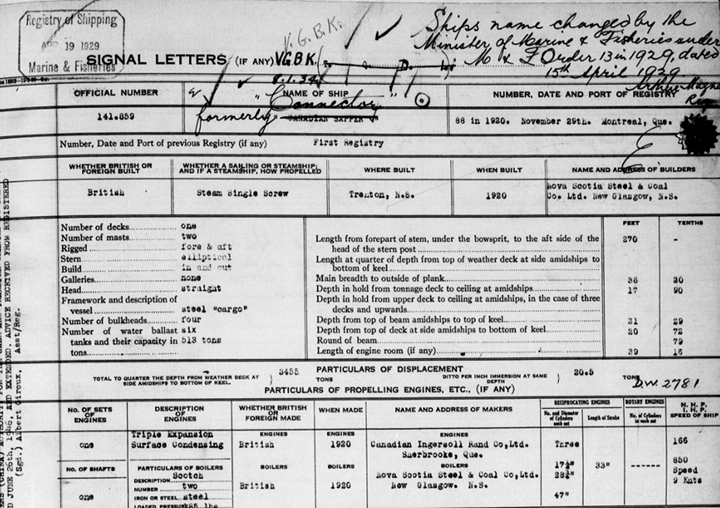 Registry of Shipping
APR 19 1929
Marine & Fisheries
V.G.B.K.
Ships name changed by the
Minister of Marine & Fisheries under
M & F Order 13 in 1929, dated
15th April 1929
SIGNAL LETTERS (IF ANY) V.G.B.K.
OFFICIAL NUMBER
NAME OF SHIP
NUMBER, DATE AND PORT OF REGISTRY
141.859
"Connector"
formerly CANADIAN SAPPER
88 in 1920. November 29th. Montreal, Que.
Number, Date and Port of previous Registry (if any) First Registry
WHETHER BRITISH OR FOREIGN BUILT
WHETHER A SAILING OR STEAMSHIP; AND IF A STEAMSHIP, HOW PROPELLED
WHERE BUILT
WHEN BUILT
NAME AND ADDRESS OF BUILDERS
British
Steam Single Screw
Trenton, N.S.
1920
Nova Scotia Steel & Coal
Co. Ltd. New Glasgow, N.S.
FEET TENTHS
Number of decks one
Number of masts two
Rigged fore & aft
Stern elliptical
Build in and out
Galleries none
Head straight
Framework and description of
vessel steel "cargo"
Number of bulkheads four
Number of water ballast six
tanks and their capacity in 513 tons
tons
Length from forepart of stem, under the bowsprit, to the aft side of the
head of the stern post 270 -
Length at quarter of depth from top of weather deck at side amidships to
bottom of keel
Main breadth to outside of plank 38 30
Depth in hold from tonnage deck to ceiling at amidships 17 90
Depth in hold from upper deck to ceiling at amidships, in the case of three
decks and upwards
Depth from top of beam amidships to top of keel 21 29
Depth from top of deck at side amidships to bottom of keel 20 72
Round of beam 79
Length of engine room (if any) 39 16
PARTICULARS OF DISPLACEMENT
TOTAL TO QUARTER THE DEPTH FROM WEATHER DECK AT SIDE AMIDSHIPS TO BOTTOM OF KEEL. 3455 TONS
DITTO PER INCH IMMERSION AT SAME DEPTH 20.5 TONS
D.W. 2781
PARTICULARS OF PROPELLING ENGINES, ETC., (IF ANY)
NO. OF SETS OF ENGINES
DESCRIPTION OF ENGINES
WHETHER BRITISH OR FOREIGN MADE
WHEN MADE
NAME AND ADDRESS OF MAKERS
RECIPROCATING ENGINES
No. and Diameter of Cylinders each set
Length of Stroke
ROTARY ENGINES
No. of Cylinders in each set
N. H. P.
I. H. P.
SPEED OF SHIP
one
Triple Expansion
Surface Condensing
ENGINES
British
ENGINES
1920
ENGINES
Canadian Ingersoll Rand Co,Ltd.
Sherbrooke, Que.
Three
166
NO. OF SHAFTS
one
PARTICULARS OF BOILERS
DESCRIPTION Scotch
NUMBER two
IRON OR STEEL steel
LOADED PRESSURE 185 lbs
BOILERS
British
BOILERS
1920
BOILERS
Nova Scotia Steel & Coal Co,Ltd.
New Glasgow. N.S.
33"
47"
850
Speed
9 Knts
(Sgd.) Albert Giroux, Asst/Reg.